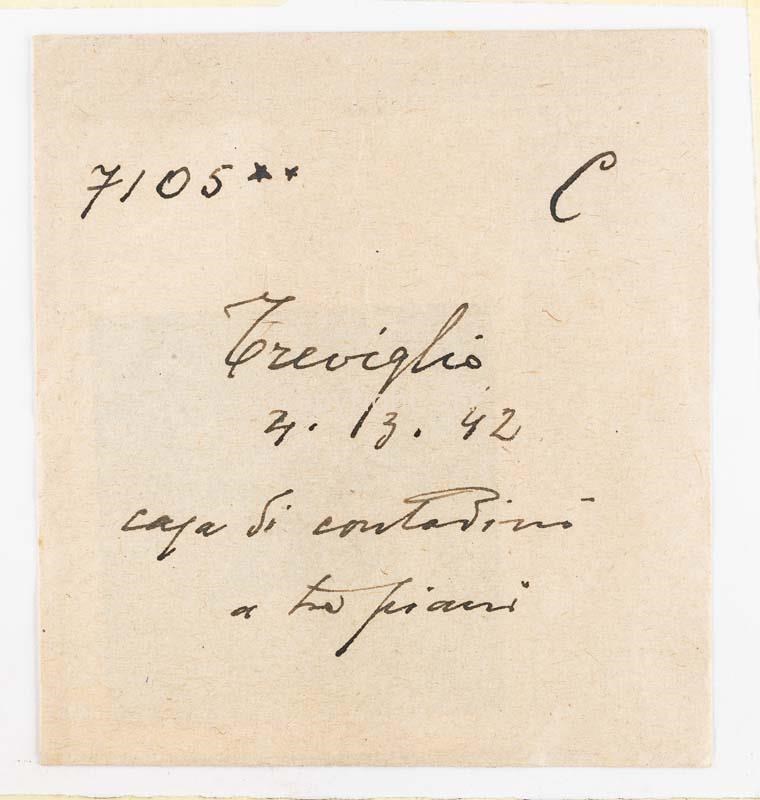 7105** C
Treviglio
4. 13. 42
casa di contadini
a tre piani